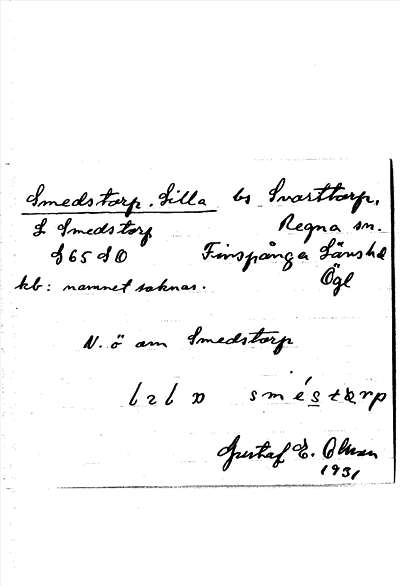 Smedstorp, Lilla bs Svarttorp,
L Smedstorp Regna sn.
S 65 SO Finspånga Länshd
kb: namnet saknas. Ögl
N. ö om Smedstorp
sméstɑrp
Gustaf E. Olman
1931